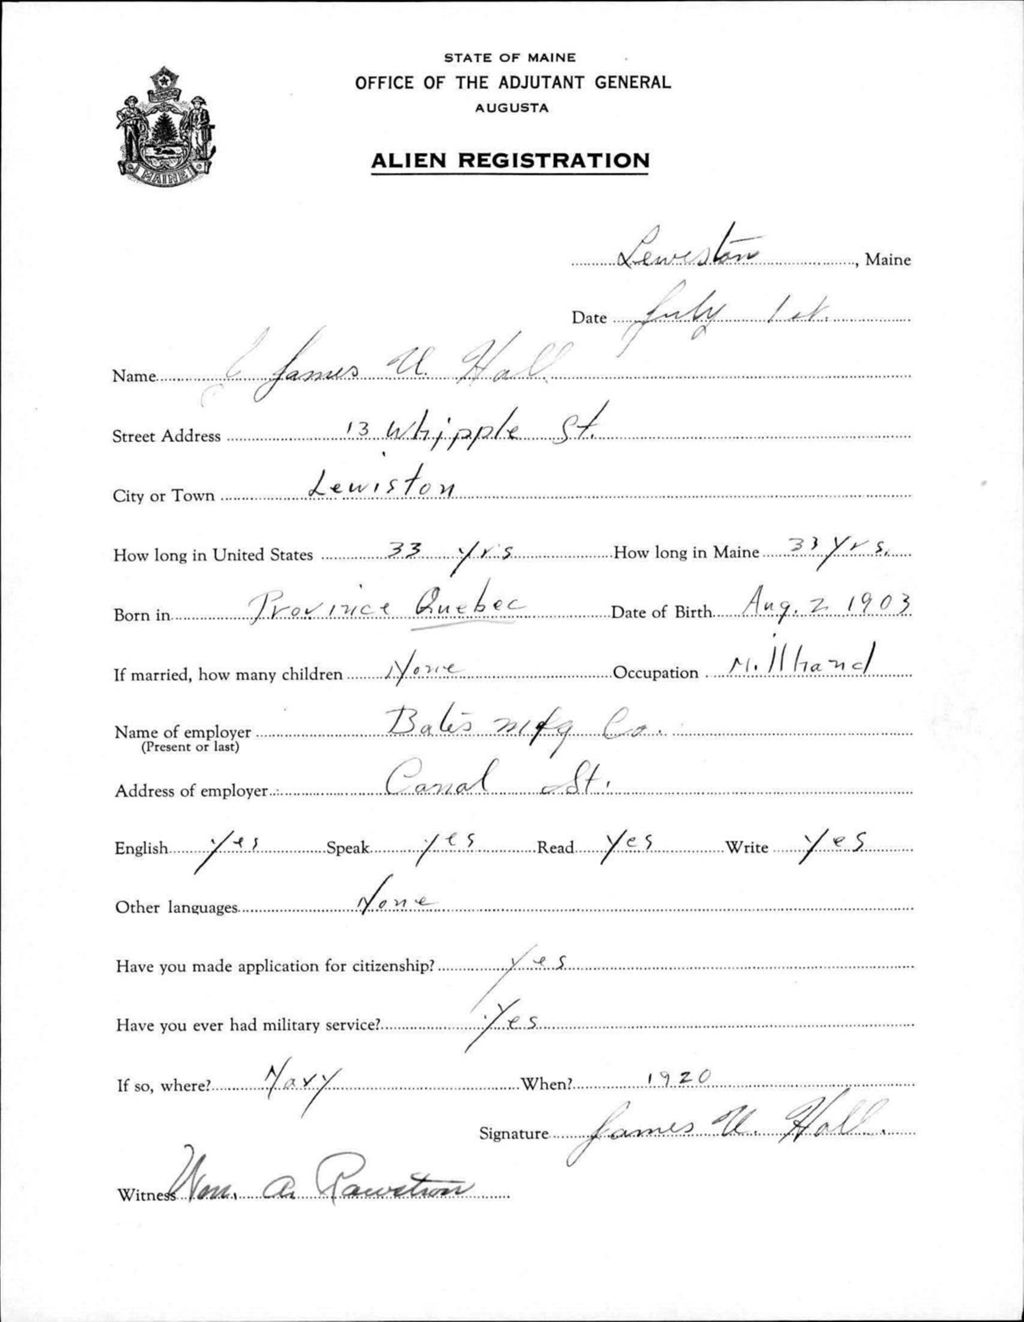 STATE OF MAINE
OFFICE OF THE ADJUTANT GENERAL
AUGUSTA
ALIEN REGISTRATION
MAINE
Lewiston, Maine
Date July 1st.
Name James U. Hall
Street Address 13 Whipple St.
City or Town Lewiston
How long in United States 33 yrs How long in Maine 33 yrs.
Born in Province Quebec Date of Birth Aug. 2 1903
If married, how many children None Occupation Millhand
Name of employer Bates Mfg Co.
(Present or last)
Address of employer Canal St.
English Yes Speak yes Read Yes Write Yes
Other languages None
Have you made application for citizenship? Yes
Have you ever had military service? Yes
If so, where? Navy When? 1920
Signature James U. Hall.
Witness Wm. A. Rawstron